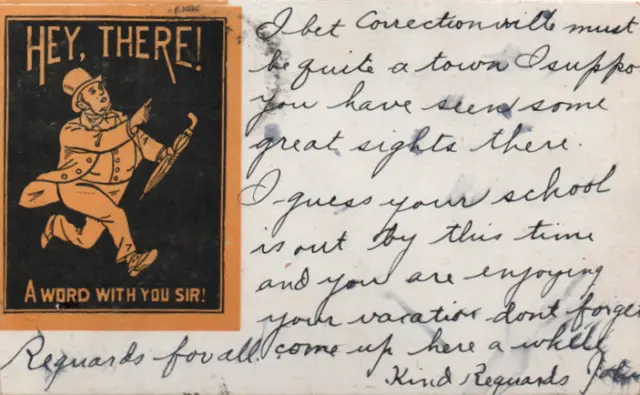 HEY, THERE!
A WORD WITH YOU SIR!
I bet Correctionville must
be quite a town I suppo
you have seen some
great sights there.
I guess your school
is out by this time
and you are enjoying
your vacation dont forget
Reguards for all. come up here a while
Kind Reguards John